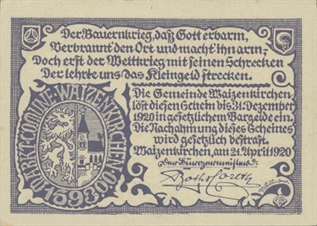 Der Bauernkrieg, daß Gott erbarm,
Verbrannt den Ort und macht ihn arm;
Doch erst der Weltkrieg mit seinen Schrecken
Der lehrte uns das Kleingeld strecken.
Die Gemeinde Waizenkirchen
löst diesen Schein bis 31. Dezember
1920 in gesetzlichem Bargelde ein.
Die Nachahmung dieses Scheines
wird gesetzlich bestraft.
Waizenkirchen, am 21. April 1920
MARKTCOMUNE WAIZENKIRCHEN
1593